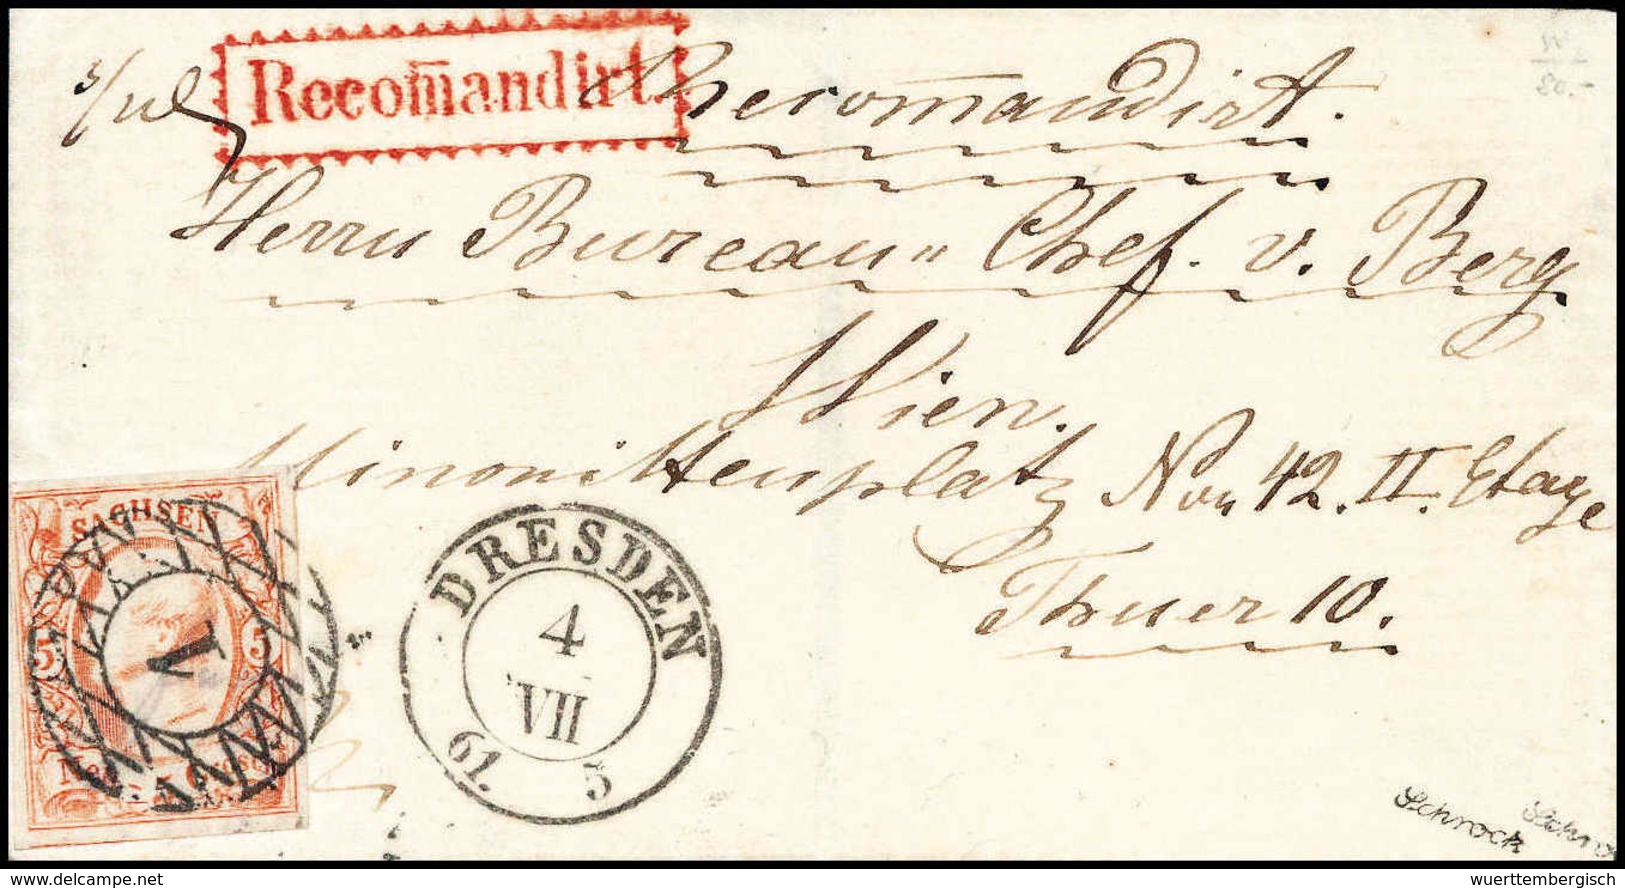 Recom̄andirt.
Recom̄andirt.
Herrn Bureau" Chef. v. Berg
Wien.
Minorittenplatz Nro 42. II. Etage
Thuer 10.
SACHSEN
5 5
Neu- Grosch
DRESDEN
4
VII
61. 5
Schrock
delcampe.net
wuerttembergisch